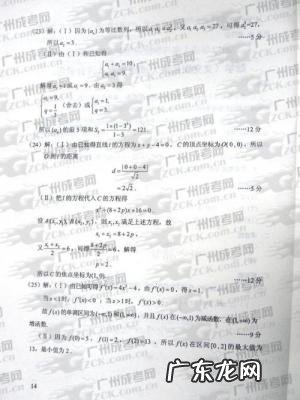 (23) 解:(Ⅰ)因为{aₙ}为等比数列,所以a₁a₃=a₂²,又a₁a₂a₃=27,可得a₂³=27,
所以a₂=3. ……5分
(Ⅱ)由(Ⅰ)和已知得
{a₁+a₃=10,
a₁a₃=9.
解得a₁=1或a₁=9.由a₂=3得
{a₁=9,
q=1/3 (舍去)或 {a₁=1,
q=3.
所以{aₙ}的前5项和S₅=1×(1-3⁵)/(1-3)=121. ……12分
(24) 解:(Ⅰ)由已知得直线l的方程为x+y-4=0,C的顶点坐标为O(0,0),所以
O到l的距离
d=|0+0-4|/√2
=2√2.
(Ⅱ)把l的方程代入C的方程得
x²-(8+2p)x+16=0.
设A(x₁,y₁),B(x₂,y₂),则x₁,x₂满足上述方程,故
x₁+x₂=8+2p,
又(x₁+x₂)/2=6,可得(8+2p)/2=6,解得
p=2.
所以C的焦点坐标为(1,0). ……12分
(25) 解:(Ⅰ)由已知可得f′(x)=4x³-4,由f′(x)=0,得x=1.
当x<1时,f′(x)<0;当x>1时,f′(x)>0.
故f(x)的单调区间为(-∞,1)和(1,+∞),并且f(x)在(-∞,1)为减函数,在(1,+∞)为
增函数. ……9分
(Ⅱ)因为f(0)=5,f(1)=2,f(2)=13,所以f(x)在区间[0,2]的最大值为
13,最小值为2.
14
广州成考网
ZCK.com.cn
广东龙网